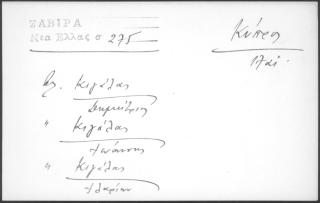 ΖΑΒΙΡΑ
Νέα Ελλάς σ 275
Κύπρος
Βλ. Κιγάλας
Δημήτριος
" Κιγάλας
Ιωάννης
" Κιγάλας
Ιλαρίων